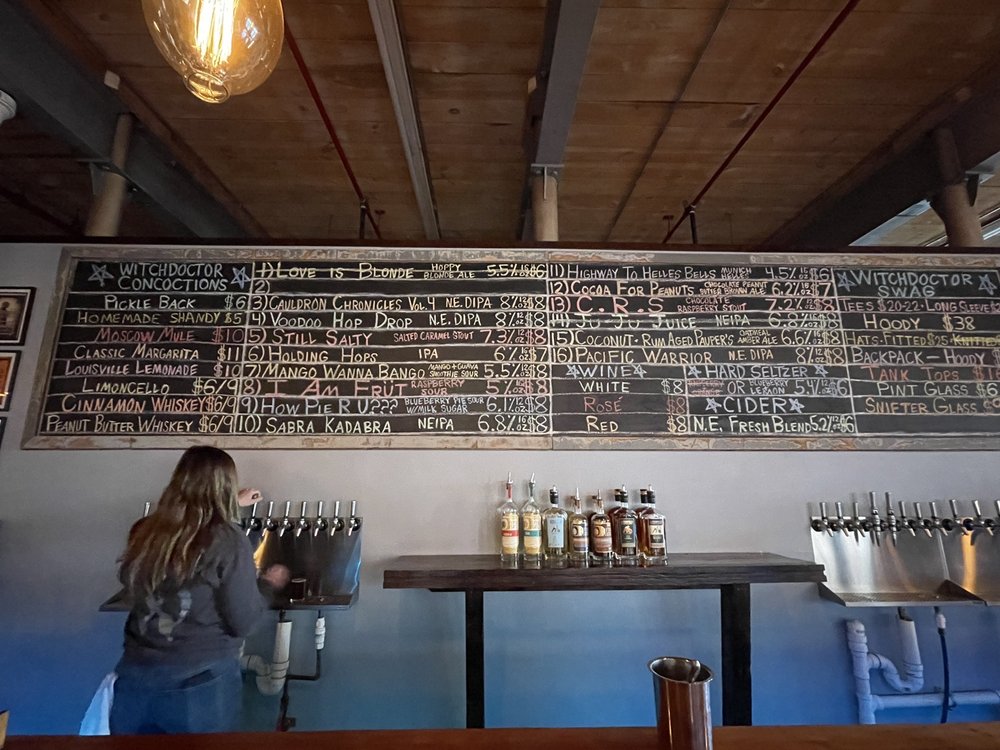 WITCHDOCTOR
CONCOCTIONS
PICKLE BACK $6
HOMEMADE SHANDY $5
MOSCOW MULE $10
CLASSIC MARGARITA $11
LOUISVILLE LEMONADE $10
LIMONCELLO $6/9
CINNAMON WHISKEY $6/9
PEANUT BUTTER WHISKEY $6/9
1) LOVE IS BLONDE HOPPY BLONDE ALE 5.5% 16 OZ $6
2)
3) CAULDRON CHRONICLES VOL. 4 N.E. DIPA 8% 12 OZ $8
4) VOODOO HOP DROP N.E. DIPA 8% 12 OZ $8
5) STILL SALTY SALTED CARAMEL STOUT 7.3% $8
6) HOLDING HOPS IPA 6% $7
7) MANGO WANNA BANGO MANGO + GUAVA SMOOTHIE SOUR 5.5% $8
8) I AM FRÜT RASPBERRY SOUR 5% $8
9) HOW PIE R U??? BLUEBERRY PIE SOUR W/MILK SUGAR 6.1% 12 OZ $8
10) SABRA KADABRA NEIPA 6.8% 16 OZ $8
11) HIGHWAY TO HELLES BELLS MUNICH HELLES 4.5% 16 OZ $6
12) COCOA FOR PEANUTS CHOCOLATE PEANUT BUTTER BROWN ALE 6.2% $7
13) C.R.S CHOCOLATE RASPBERRY STOUT 7.2% $8
14) JU-JU JUICE NEIPA 6.8% $8
15) COCONUT-RUM AGED PAUPER'S OATMEAL AMBER ALE 6.6% $8
16) PACIFIC WARRIOR N.E. DIPA 8% 12 OZ $8
WINE
WHITE $8
ROSÉ $8
RED $8
HARD SELTZER
OR BLUEBERRY LEMON 5% $6
CIDER
N.E. FRESH BLEND 5.2% 16 OZ $6
WITCHDOCTOR
SWAG
TEES $20-22 - LONG SLEEVE
HOODY $38
HATS-FITTED $25 -
BACKPACK - HOODY
TANK TOPS
PINT GLASS $6
SNIFTER GLASS